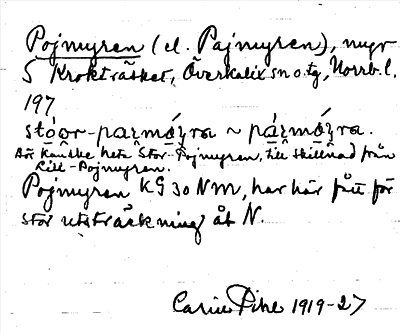 Pojmyren (el. Pajmyren), myr
S Krokträsket, Överkalix sn o. tg, Norrb. l.
197
Bör kanske heta Stor-Pojmyren, till skillnad från
Lill-Pojmyren.
Pojmyren KG 30 NM, har här fått för
stor utsträckning åt N.
Carin Pihl 1919-27